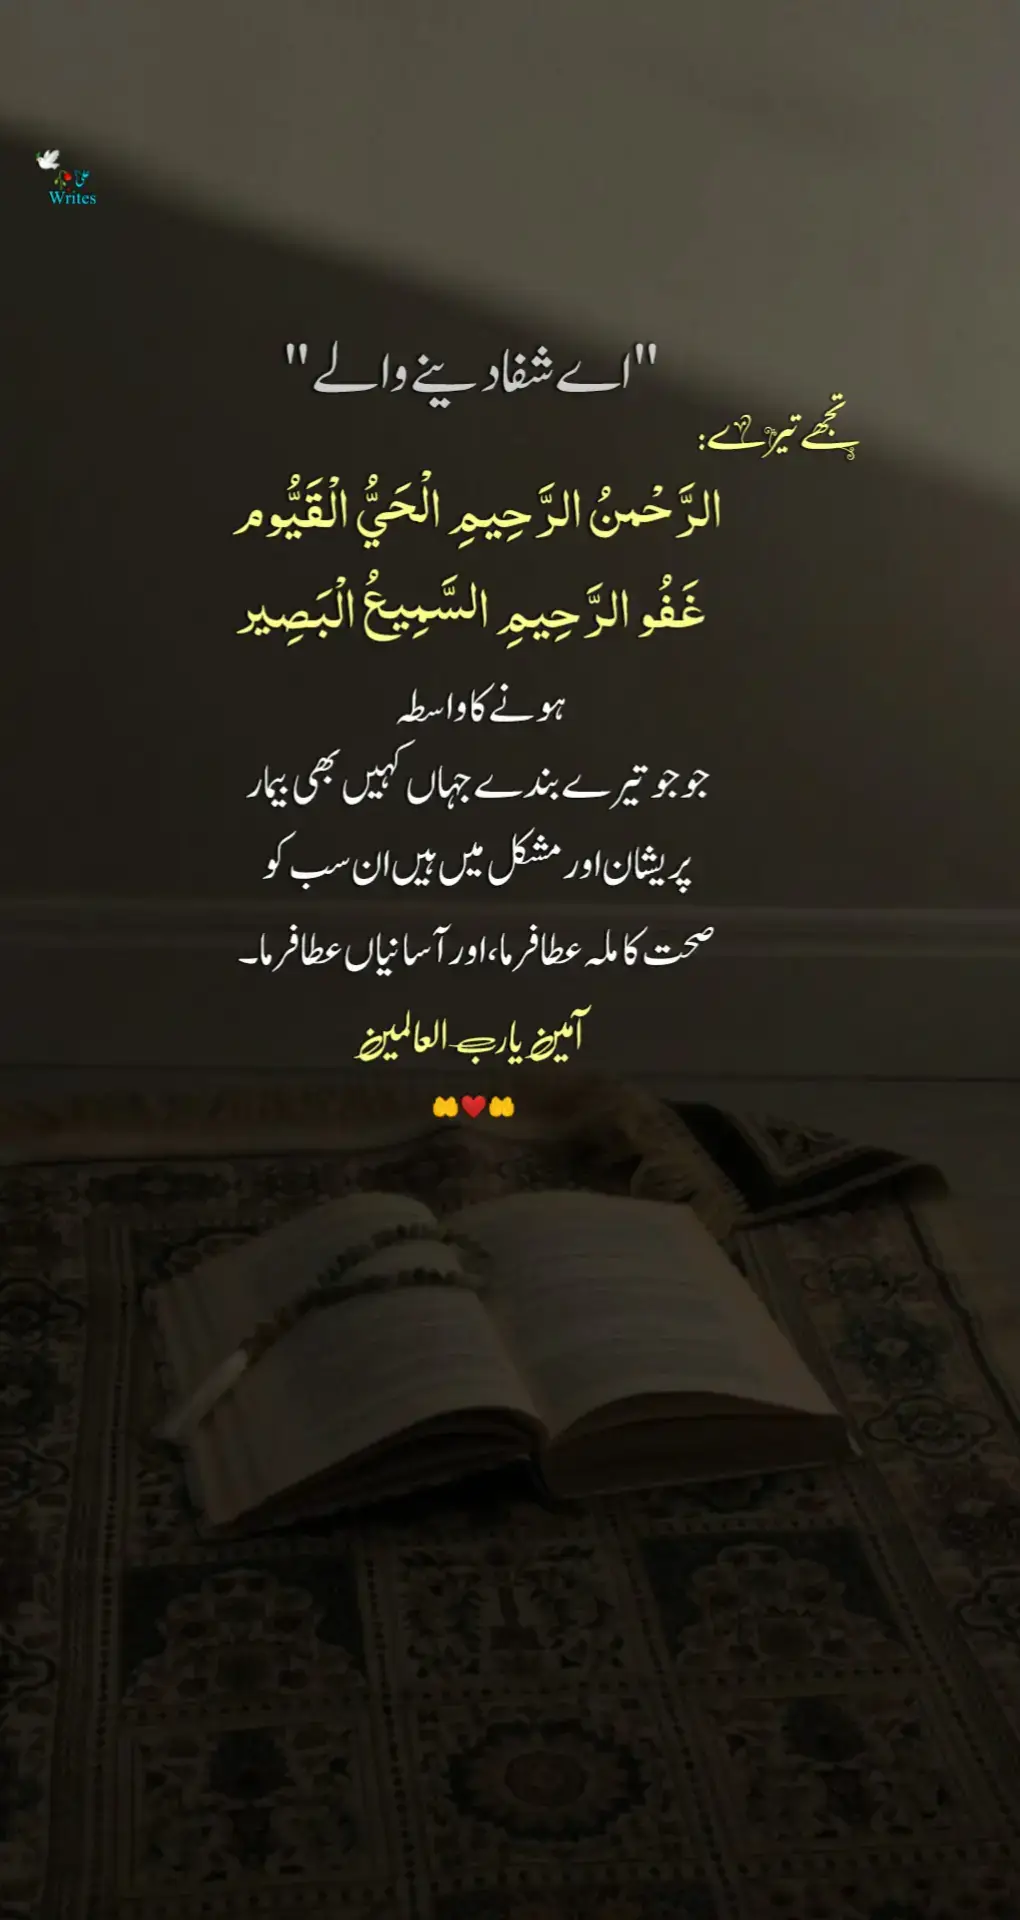 علی
Writes
"اے شفا دینے والے"
تجھے تیرے:
الرَّحْمنُ الرَّحِيمِ الْحَيُّ الْقَيُّوم
غَفُو الرَّحِيمِ السَّمِيعُ الْبَصِير
ہونے کا واسطہ
جو جو تیرے بندے جہاں کہیں بھی بیمار
پریشان اور مشکل میں ہیں ان سب کو
صحت کاملہ عطا فرما، اور آسانیاں عطا فرما۔
آمین یارب العالمین
🤲❤️🤲